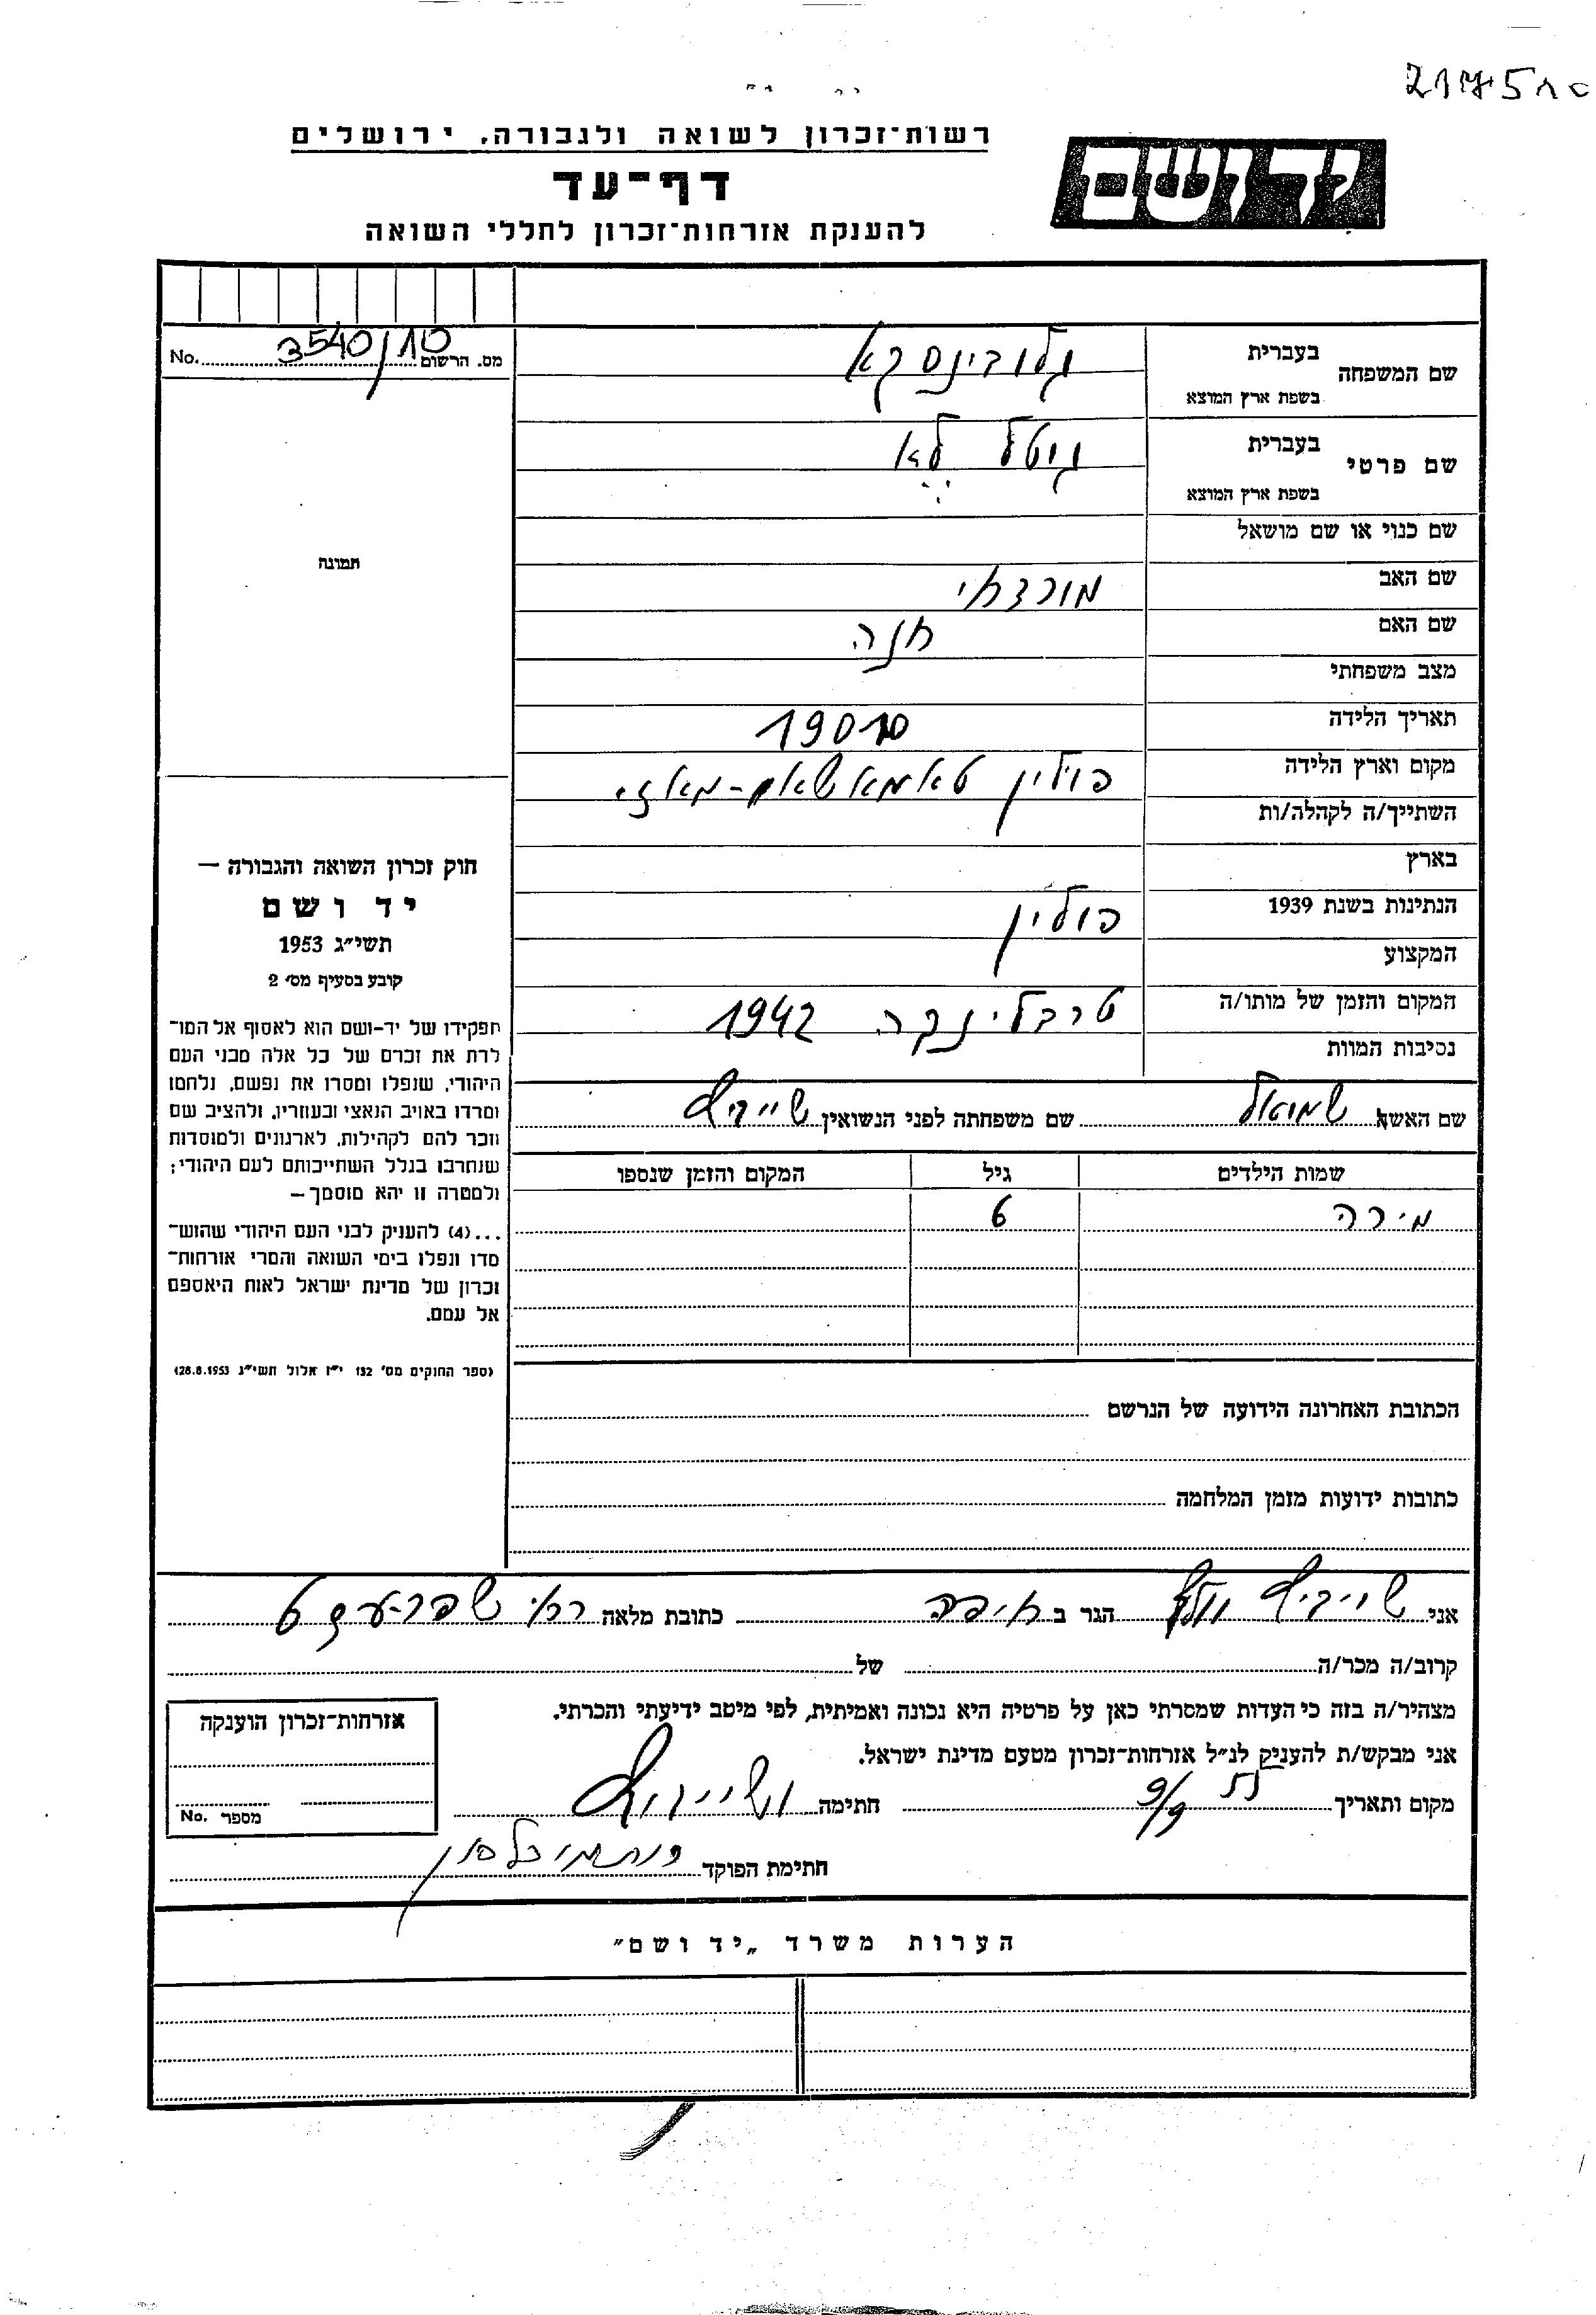 2175810
יד ושם
רשות־זכרון לשואה ולגבורה, ירושלים
דף־עד
להענקת אזרחות־זכרון לחללי השואה
מס. הרשום 3540/10 No.
שם המשפחה בעברית גלובינסקא
בשפת ארץ המוצא
שם פרטי בעברית גיטל לאה
בשפת ארץ המוצא
שם כנוי או שם מושאל
שם האב מורדכי
שם האם חנה
מצב משפחתי
תאריך הלידה 1910
מקום וארץ הלידה פולין טאמאשאוו-מאזי
השתייך/ה לקהלה/ות
בארץ
הנתינות בשנת 1939 פולין
המקצוע
המקום והזמן של מותו/ה טרבלינקה 1942
נסיבות המוות
שם האשה שמואל שם משפחתה לפני הנשואין
שמות הילדים גיל המקום והזמן שנספו
מירה 6
תמונה
חוק זכרון השואה והגבורה —
יד ושם
תשי״ג 1953
קובע בסעיף מס׳ 2
תפקידו של יד-ושם הוא לאסוף אל המו־
לדת את זכרם של כל אלה מבני העם
היהודי, שנפלו ומסרו את נפשם, נלחמו
ומרדו באויב הנאצי ובעוזריו, ולהציב שם
וזכר להם לקהילות, לארגונים ולמוסדות
שנחרבו בגלל השתייכותם לעם היהודי;
ולמטרה זו יהא מוסמך—
...(4) להעניק לבני העם היהודי שהוש־
מדו ונפלו בימי השואה והמרי אזרחות־
זכרון של מדינת ישראל לאות היאספם
אל עמם.
(ספר החוקים מס׳ 132 י״ז אלול תשי״ג 28.8.1953)
הכתובת האחרונה הידועה של הנרשם
כתובות ידועות מזמן המלחמה
אני הגר ב חיפה כתובת מלאה
קרוב/ה מכר/ה של
מצהיר/ה בזה כי העדות שמסרתי כאן על פרטיה היא נכונה ואמיתית, לפי מיטב ידיעתי והכרתי.
אני מבקש/ת להעניק לנ״ל אזרחות-זכרון מטעם מדינת ישראל.
מקום ותאריך 9/9 55 חתימה
חתימת הפוקד
אזרחות-זכרון הוענקה
מספר No.
הערות משרד „יד ושם״